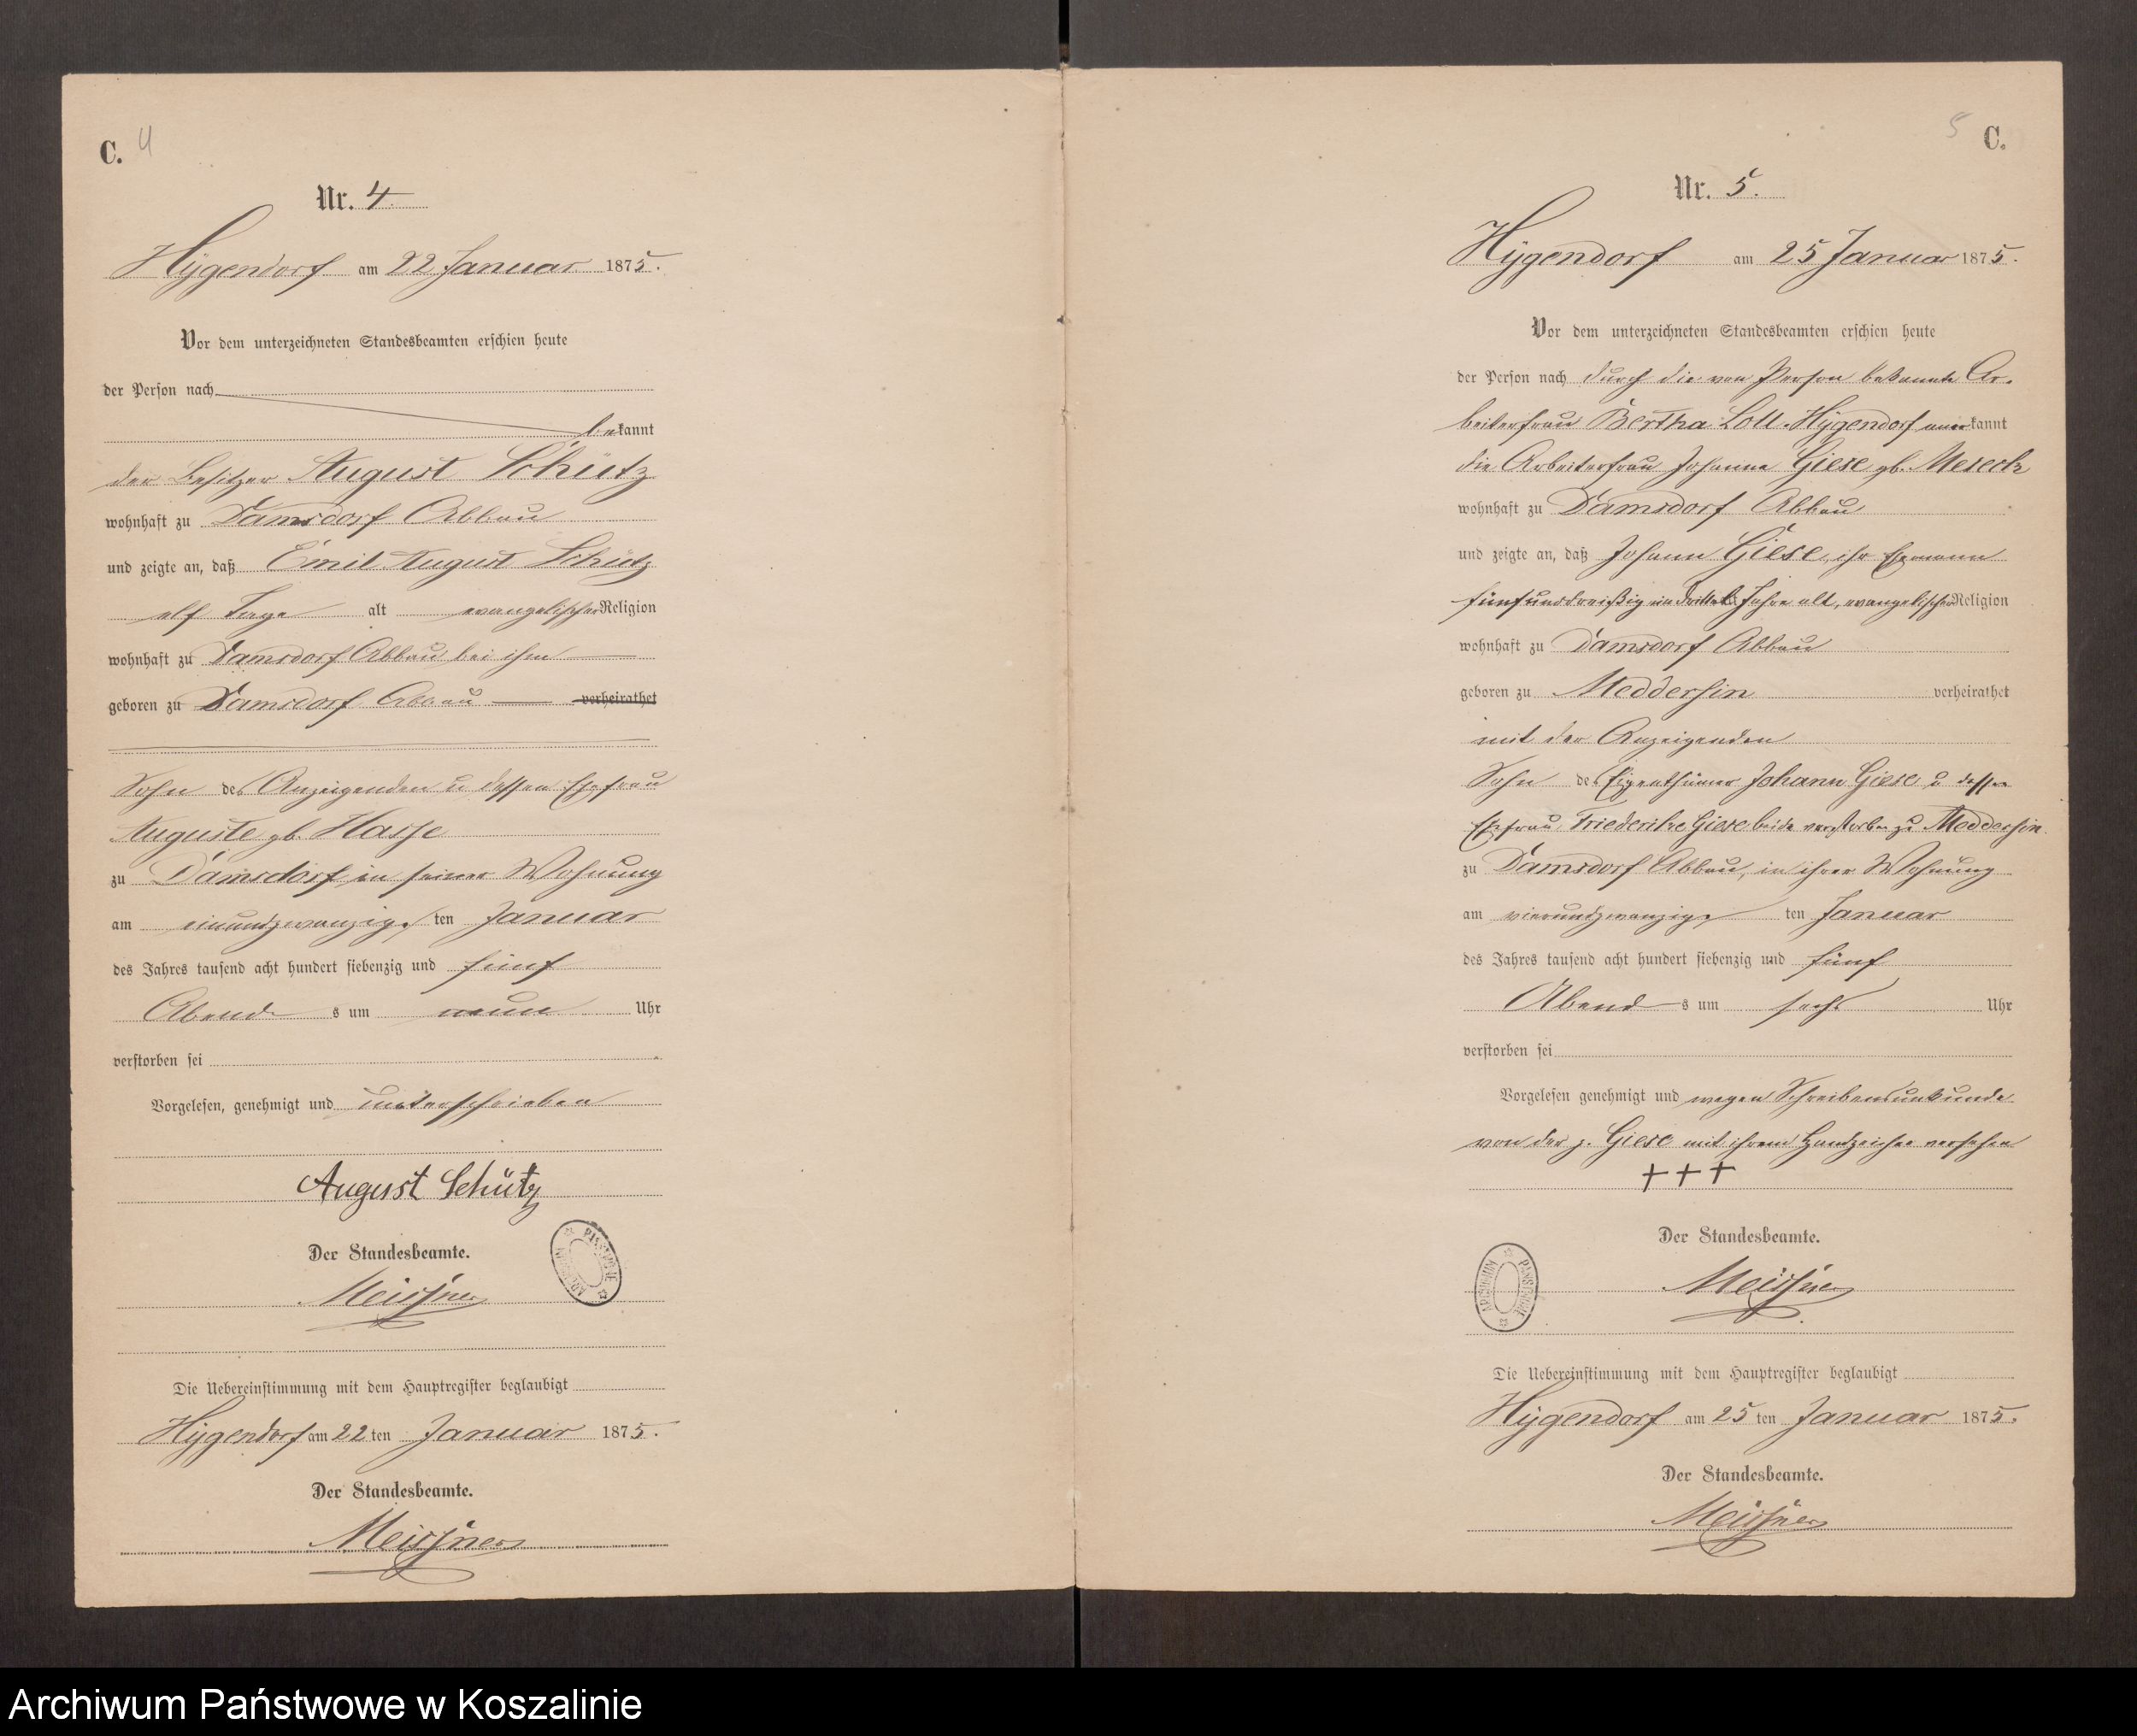 C. 4
Nr. 4.
Hygendorf am 22 Januar 1875.
Vor dem unterzeichneten Standesbeamten erschien heute
der Person nach
bekannt
der Besitzer August Schütz
wohnhaft zu Damsdorf Abbau
und zeigte an, daß Emil August Schütz
elf Tage alt evangelischer Religion
wohnhaft zu Damsdorf Abbau bei ihm
geboren zu Damsdorf Abbau verheirathet
Sohn des Anzeigenden u dessen Ehefrau
Auguste gb. Hasse
zu Damsdorf in seiner Wohnung
am einundzwanzigs ten Januar
des Jahres tausend acht hundert siebenzig und fünf
Abend s um neun Uhr
verstorben sei
Vorgelesen, genehmigt und unterschrieben
August Schütz
Der Standesbeamte.
Meissner
ARCHIWUM PAŃSTWOWE
Die Uebereinstimmung mit dem Hauptregister beglaubigt
Hygendorf am 22 ten Januar 1875.
Der Standesbeamte.
Meissner
5 C.
Nr. 5.
Hygendorf am 25 Januar 1875.
Vor dem unterzeichneten Standesbeamten erschien heute
der Person nach durch die von Person bekannte Ar-
beiterfrau Bertha Loll-Hygendorf anerkannt
die Arbeiterfrau Johanna Giese gb. Meseck
wohnhaft zu Damsdorf Abbau
und zeigte an, daß Johann Giese, ihr Ehemann
fünfunddreißig ein drittel Jahre alt, evangelischer Religion
wohnhaft zu Damsdorf Abbau
geboren zu Meddersin verheirathet
mit der Anzeigenden
Sohn des Eigenthümer Johann Giese u dessen
Ehefrau Friederike Giese beide verstorben zu Meddersin
zu Damsdorf Abbau, in ihrer Wohnung
am vierundzwanzigs ten Januar
des Jahres tausend acht hundert siebenzig und fünf
Abend s um sechs Uhr
verstorben sei
Vorgelesen genehmigt und wegen Schreibensunkunde
von der p. Giese mit ihrem Handzeichen versehen
+++
Der Standesbeamte.
Meissner
ARCHIWUM PAŃSTWOWE
Die Uebereinstimmung mit dem Hauptregister beglaubigt
Hygendorf am 25 ten Januar 1875.
Der Standesbeamte.
Meissner
Archiwum Państwowe w Koszalinie